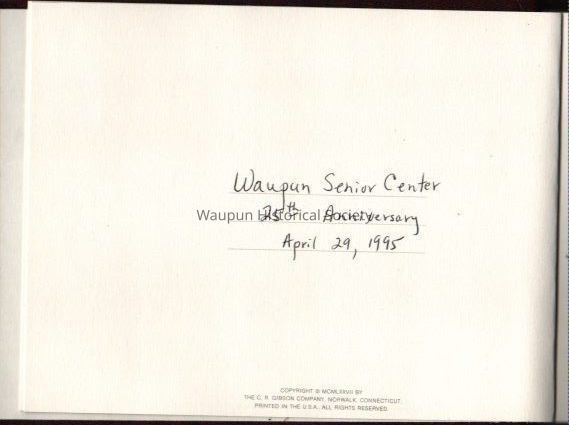 Waupun Senior Center
25th Anniversary
Waupun Historical Society
April 29, 1995
COPYRIGHT © MCMLXXVII BY
THE C. R. GIBSON COMPANY, NORWALK, CONNECTICUT.
PRINTED IN THE U.S.A. ALL RIGHTS RESERVED.